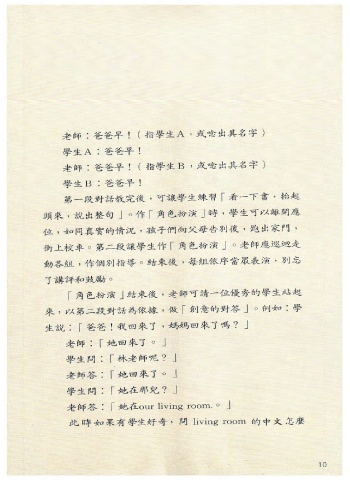 老師：爸爸早！（指學生A，或唸出其名字）
學生A：爸爸早！
老師：爸爸早！（指學生B，或唸出其名字）
學生B：爸爸早！
第一段對話教完後，可讓學生練習「看一下書，抬起
頭來，說出整句」。作「角色扮演」時，學生可以離開座
位，如同真實的情況，孩子們向父母告別後，跑出家門，
衝上校車。第二段讓學生作「角色扮演」。老師應巡迴走
動各組，作個別指導。結束後，每組依序當眾表演，別忘
了講評和鼓勵。
「角色扮演」結束後，老師可請一位優秀的學生站起
來，以第二段對話為依據，做「創意的對答」。例如：學
生說：「爸爸！我回來了，媽媽回來了嗎？」
老師：「她回來了。」
學生問：「林老師呢？」
老師答：「她回來了。」
學生問：「她在那兒？」
老師答：「她在our living room.。」
此時如果有學生好奇，問 living room 的中文怎麼
10